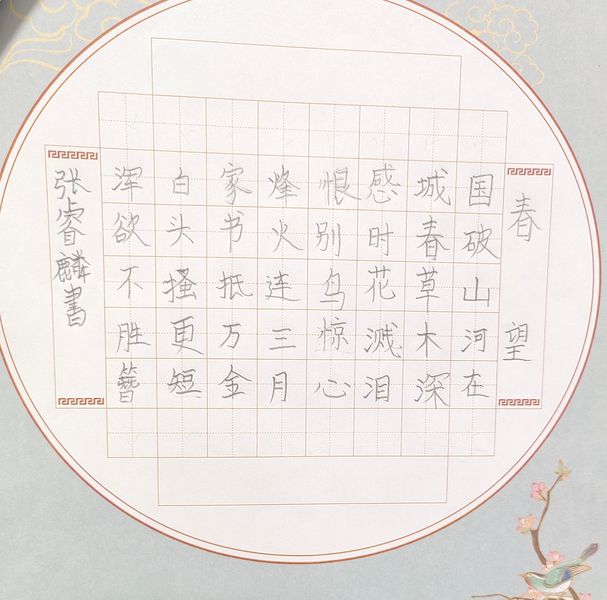 春望
国破山河在
城春草木深
感时花溅泪
恨别鸟惊心
烽火连三月
家书抵万金
白头搔更短
浑欲不胜簪
张睿麟書